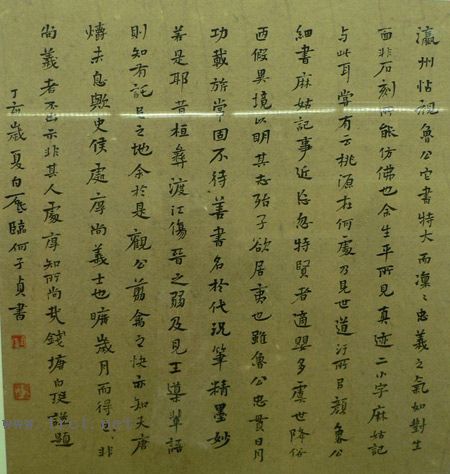 瀛州帖視魯公它書特大而凜〻忠義之氣如對生
面非石刻所能仿佛也余生平所見真迹二小字麻姑記
与此耳嘗有云桃源在何處乃見世道汙所㠯顏魯公
細書麻姑記事近忽特賢者適嬰多虞世降俗
西假異境以明其志殆子欲居夷也雖魯公忠貫日月
功載旂常固不待善書名於代況筆精墨妙
若是耶昔桓彝渡江傷晉之弱及見王導輩語
則知有託足之地余於是觀公翦禽之快亦知夫唐
燼未息歟史侯處厚尚義士也曠歲月而得〻非
尚義者不出示非其人處厚知所尚哉錢塘白珽謹題
丁亥歲夏白臨何子貞書